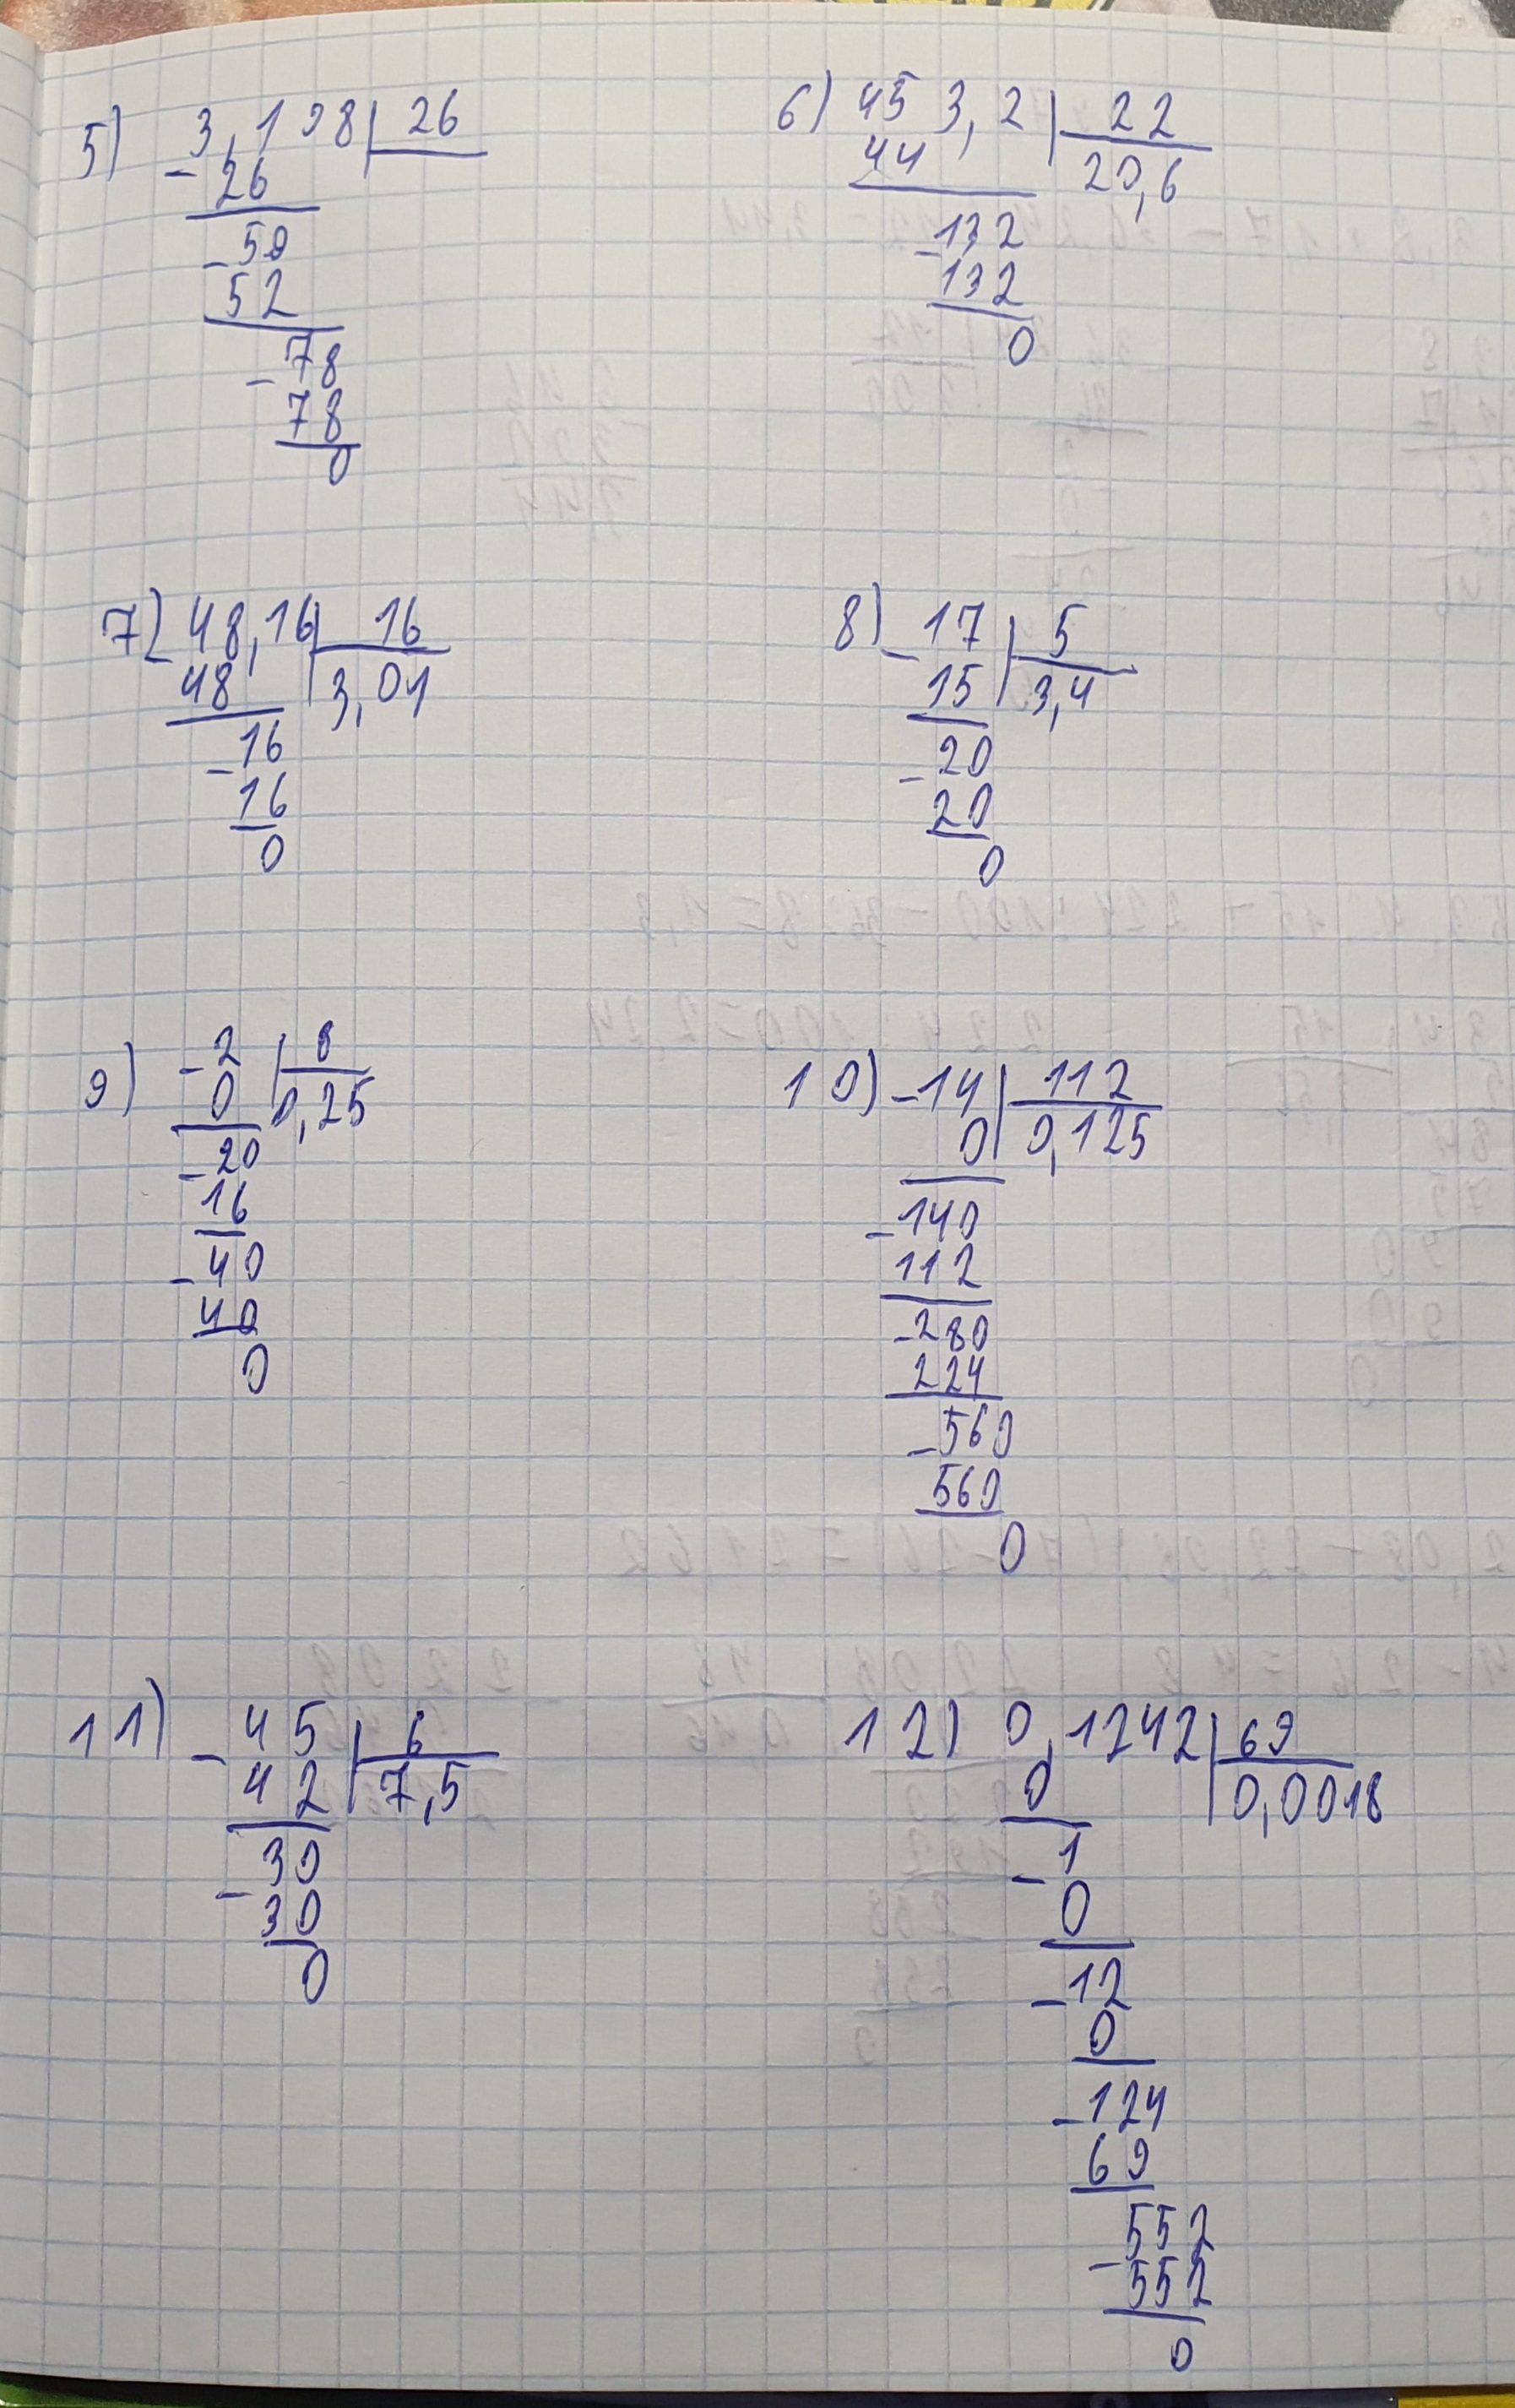 5) 3,198 26
- 26
- 59
52
- 78
78
0
6) 453,2 22
44 20,6
- 132
132
0
7) - 48,16 16
48 3,01
- 16
16
0
8) - 17 5
15 3,4
- 20
20
0
9) - 2 8
0 0,25
- 20
16
- 40
40
0
10) - 14 112
0 0,125
- 140
112
- 280
224
- 560
560
0
11) - 45 6
42 7,5
- 30
30
0
12) 0,1242 69
0 0,0018
- 1
0
- 12
0
- 124
69
- 552
552
0